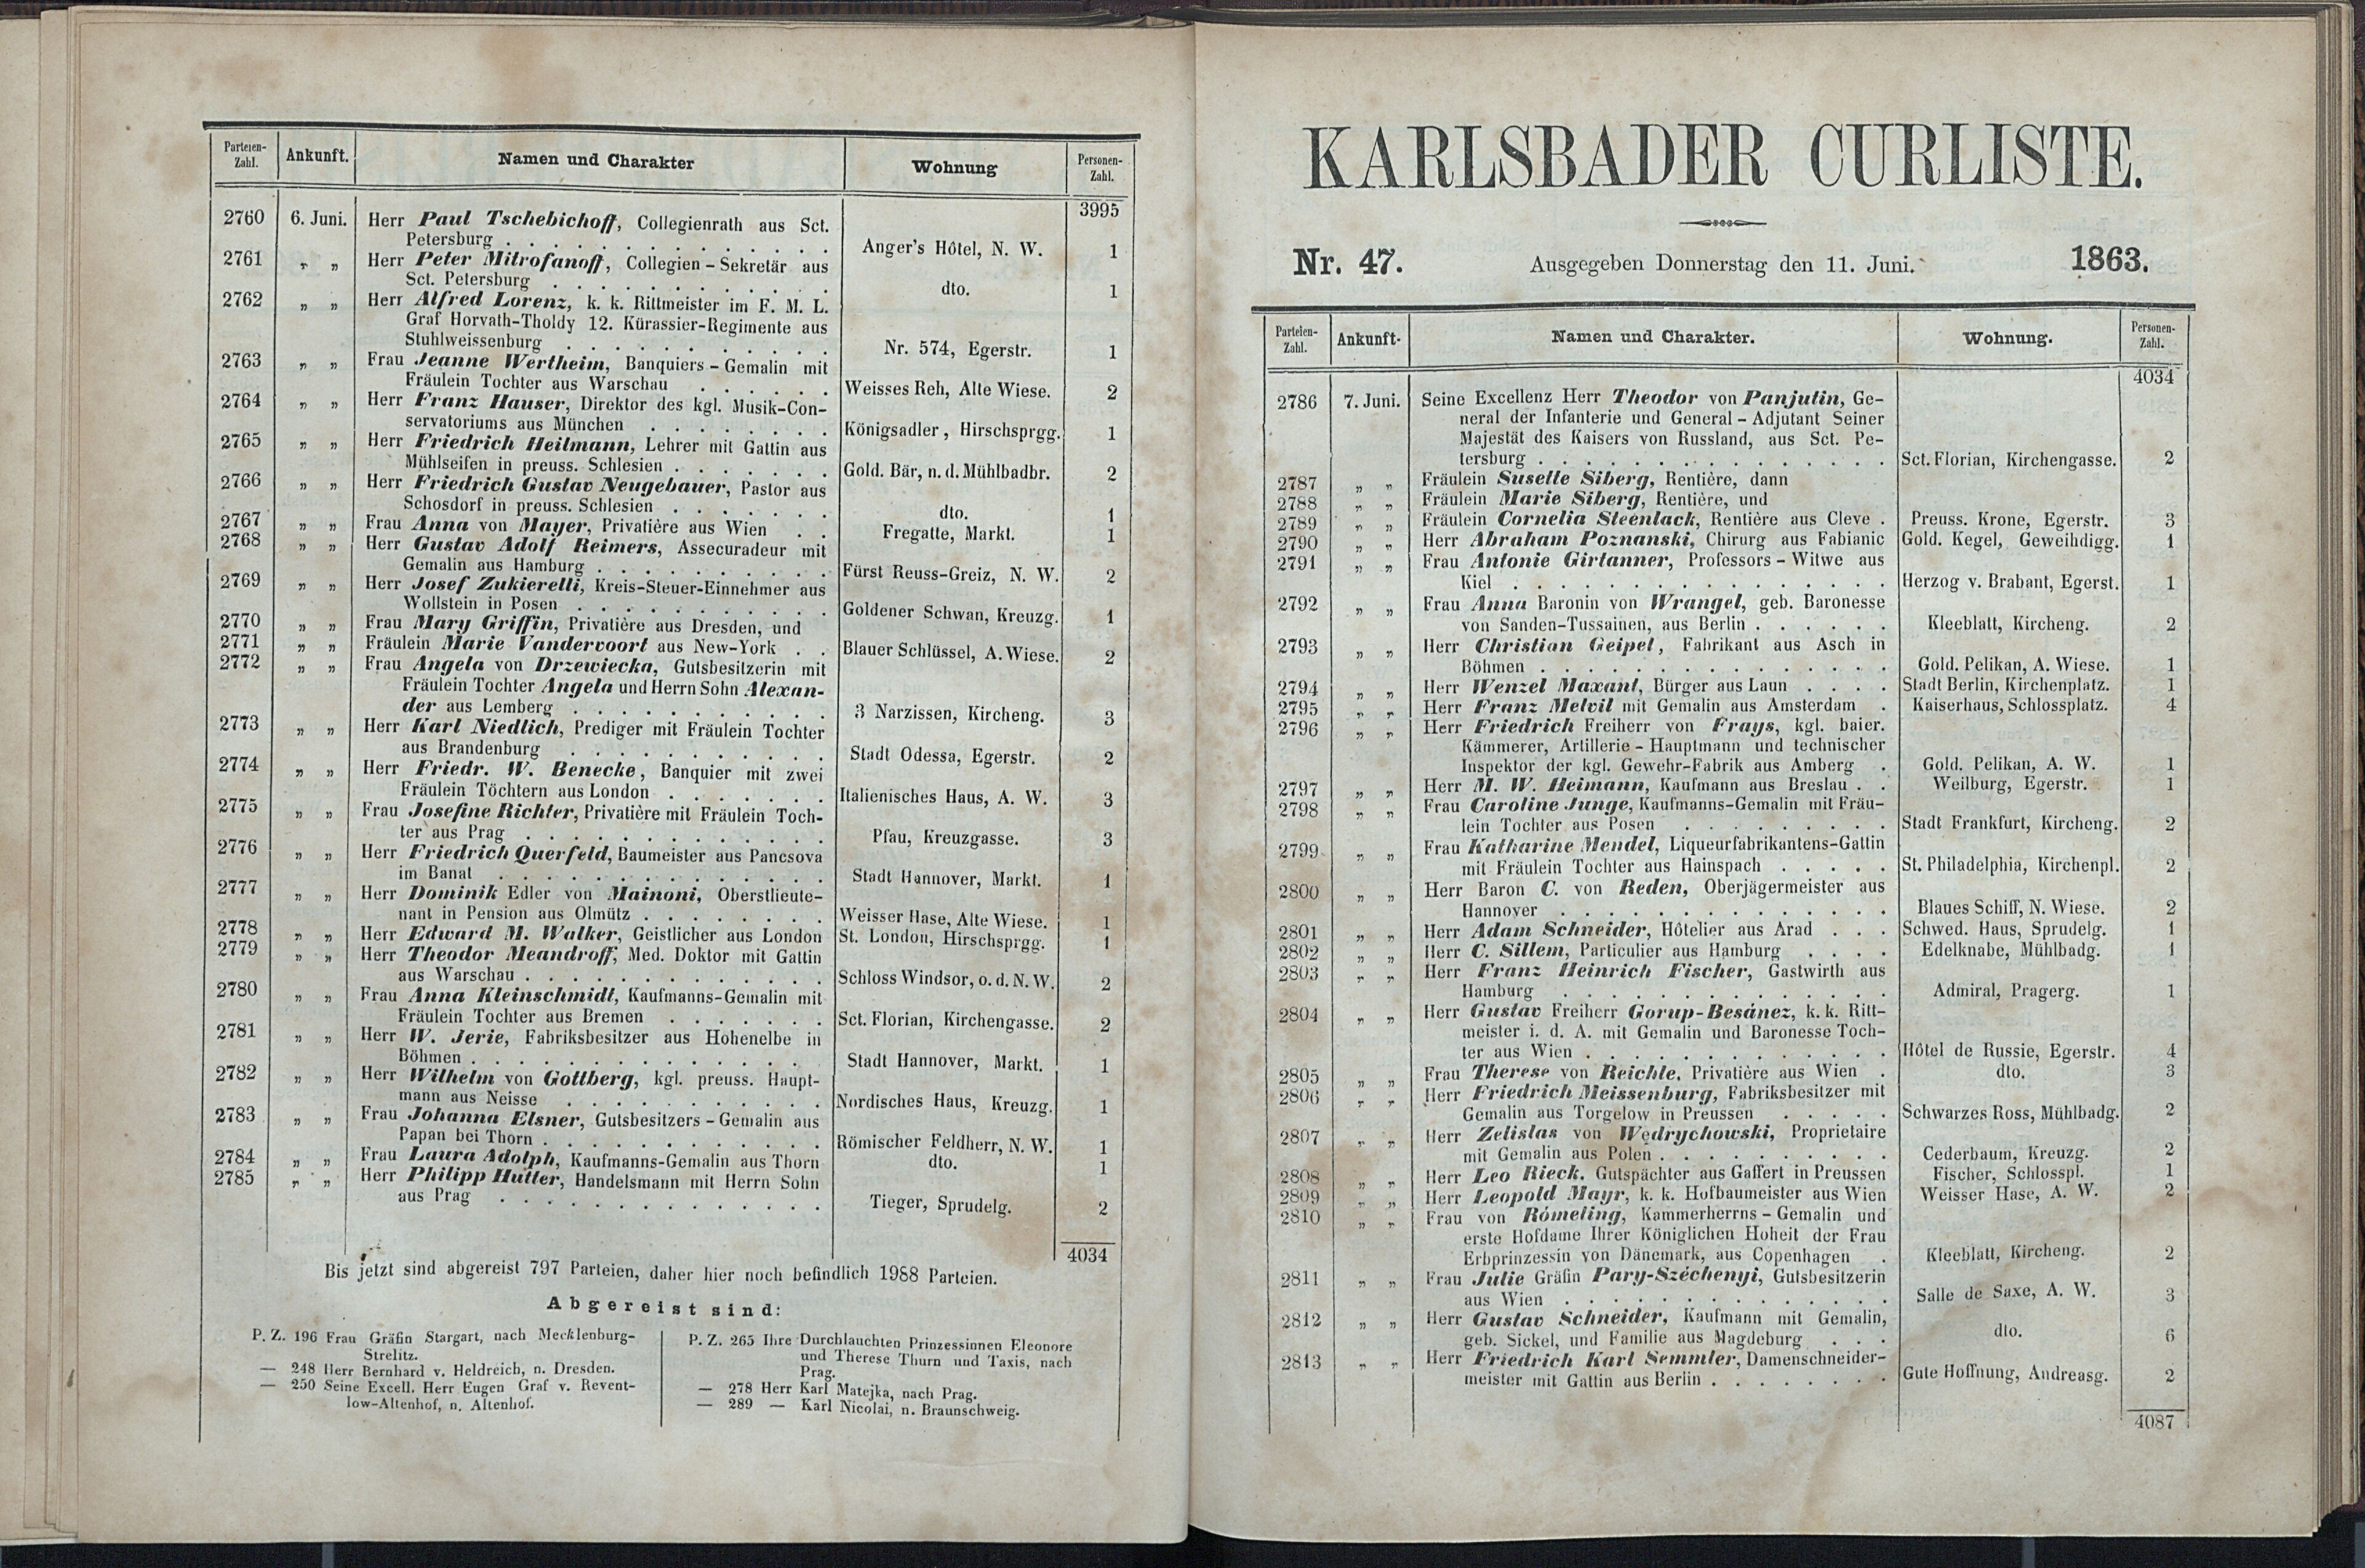 Parteien-Zahl. Ankunft. Namen und Charakter Wohnung Personen-Zahl.
3995
2760 6. Juni. Herr Paul Tschebichoff, Collegienrath aus Sct.
Petersburg . . . Anger's Hôtel, N. W. 1
2761 „ „ Herr Peter Mitrofanoff, Collegien-Sekretär aus
Sct. Petersburg . . . dto. 1
2762 „ „ Herr Alfred Lorenz, k. k. Rittmeister im F. M. L.
Graf Horvath-Tholdy 12. Kürassier-Regimente aus
Stuhlweissenburg . . . Nr. 574, Egerstr. 1
2763 „ „ Frau Jeanne Wertheim, Banquiers-Gemalin mit
Fräulein Tochter aus Warschau . . . Weisses Reh, Alte Wiese. 2
2764 „ „ Herr Franz Hauser, Direktor des kgl. Musik-Con-
servatoriums aus München . . . Königsadler, Hirschsprgg. 1
2765 „ „ Herr Friedrich Heilmann, Lehrer mit Gattin aus
Mühlseifen in preuss. Schlesien . . . Gold. Bär, n. d. Mühlbadbr. 2
2766 „ „ Herr Friedrich Gustav Neugebauer, Pastor aus
Schosdorf in preuss. Schlesien . . . dto. 1
2767 „ „ Frau Anna von Mayer, Privatière aus Wien . . Fregatte, Markt. 1
2768 „ „ Herr Gustav Adolf Reimers, Assecuradeur mit
Gemalin aus Hamburg . . . Fürst Reuss-Greiz, N. W. 2
2769 „ „ Herr Josef Zukierelli, Kreis-Steuer-Einnehmer aus
Wollstein in Posen . . . Goldener Schwan, Kreuzg. 1
2770 „ „ Frau Mary Griffin, Privatière aus Dresden, und
2771 „ „ Fräulein Marie Vandervoort aus New-York . . Blauer Schlüssel, A. Wiese. 2
2772 „ „ Frau Angela von Drzewiecka, Gutsbesitzerin mit
Fräulein Tochter Angela und Herrn Sohn Alexan-
der aus Lemberg . . . 3 Narzissen, Kircheng. 3
2773 „ „ Herr Karl Niedlich, Prediger mit Fräulein Tochter
aus Brandenburg . . . Stadt Odessa, Egerstr. 2
2774 „ „ Herr Friedr. W. Benecke, Banquier mit zwei
Fräulein Töchtern aus London . . . Italienisches Haus, A. W. 3
2775 „ „ Frau Josefine Richter, Privatière mit Fräulein Toch-
ter aus Prag . . . Pfau, Kreuzgasse. 3
2776 „ „ Herr Friedrich Querfeld, Baumeister aus Pancsova
im Banat . . . Stadt Hannover, Markt. 1
2777 „ „ Herr Dominik Edler von Mainoni, Oberstlieute-
nant in Pension aus Olmütz . . . Weisser Hase, Alte Wiese. 1
2778 „ „ Herr Edward M. Walker, Geistlicher aus London St. London, Hirschsprgg. 1
2779 „ „ Herr Theodor Meandroff, Med. Doktor mit Gattin
aus Warschau . . . Schloss Windsor, o. d. N. W. 2
2780 „ „ Frau Anna Kleinschmidt, Kaufmanns-Gemalin mit
Fräulein Tochter aus Bremen . . . Sct. Florian, Kirchengasse. 2
2781 „ „ Herr W. Jerie, Fabriksbesitzer aus Hohenelbe in
Böhmen . . . Stadt Hannover, Markt. 1
2782 „ „ Herr Wilhelm von Gottberg, kgl. preuss. Haupt-
mann aus Neisse . . . Nordisches Haus, Kreuzg. 1
2783 „ „ Frau Johanna Elsner, Gutsbesitzers-Gemalin aus
Papan bei Thorn . . . Römischer Feldherr, N. W. 1
2784 „ „ Frau Laura Adolph, Kaufmanns-Gemalin aus Thorn dto. 1
2785 „ „ Herr Philipp Hutter, Handelsmann mit Herrn Sohn
aus Prag . . . Tieger, Sprudelg. 2
4034
Bis jetzt sind abgereist 797 Parteien, daher hier noch befindlich 1988 Parteien.
Abgereist sind:
P. Z. 196 Frau Gräfin Stargart, nach Mecklenburg-
Strelitz.
— 248 Herr Bernhard v. Heldreich, n. Dresden.
— 250 Seine Excell. Herr Eugen Graf v. Revent-
low-Altenhof, n. Altenhof.
P. Z. 265 Ihre Durchlauchten Prinzessinnen Eleonore
und Therese Thurn und Taxis, nach
Prag.
— 278 Herr Karl Matejka, nach Prag.
— 289 — Karl Nicolai, n. Braunschweig.
KARLSBADER CURLISTE.
Nr. 47. Ausgegeben Donnerstag den 11. Juni. 1863.
Parteien-Zahl. Ankunft. Namen und Charakter. Wohnung. Personen-Zahl.
4034
2786 7. Juni. Seine Excellenz Herr Theodor von Panjutin, Ge-
neral der Infanterie und General-Adjutant Seiner
Majestät des Kaisers von Russland, aus Sct. Pe-
tersburg . . . Sct. Florian, Kirchengasse. 2
2787 „ „ Fräulein Suselle Siberg, Rentière, dann
2788 „ „ Fräulein Marie Siberg, Rentière, und
2789 „ „ Fräulein Cornelia Steenlack, Rentière aus Cleve . Preuss. Krone, Egerstr. 3
2790 „ „ Herr Abraham Poznanski, Chirurg aus Fabianic Gold. Kegel, Geweihdigg. 1
2791 „ „ Frau Antonie Girtanner, Professors-Witwe aus
Kiel . . . Herzog v. Brabant, Egerst. 1
2792 „ „ Frau Anna Baronin von Wrangel, geb. Baronesse
von Sanden-Tussainen, aus Berlin . . . Kleeblatt, Kircheng. 2
2793 „ „ Herr Christian Geipel, Fabrikant aus Asch in
Böhmen . . . Gold. Pelikan, A. Wiese. 1
2794 „ „ Herr Wenzel Maxant, Bürger aus Laun . . . . Stadt Berlin, Kirchenplatz. 1
2795 „ „ Herr Franz Melvil mit Gemalin aus Amsterdam . Kaiserhaus, Schlossplatz. 4
2796 „ „ Herr Friedrich Freiherr von Frays, kgl. baier.
Kämmerer, Artillerie-Hauptmann und technischer
Inspektor der kgl. Gewehr-Fabrik aus Amberg . Gold. Pelikan, A. W. 1
2797 „ „ Herr M. W. Heimann, Kaufmann aus Breslau . . Weilburg, Egerstr. 1
2798 „ „ Frau Caroline Junge, Kaufmanns-Gemalin mit Fräu-
lein Tochter aus Posen . . . Stadt Frankfurt, Kircheng. 2
2799 „ „ Frau Katharine Mendel, Liqueurfabrikantens-Gattin
mit Fräulein Tochter aus Hainspach . . . St. Philadelphia, Kirchenpl. 2
2800 „ „ Herr Baron C. von Reden, Oberjägermeister aus
Hannover . . . Blaues Schiff, N. Wiese. 2
2801 „ „ Herr Adam Schneider, Hôtelier aus Arad . . . Schwed. Haus, Sprudelg. 1
2802 „ „ Herr C. Sillem, Particulier aus Hamburg . . . . Edelknabe, Mühlbadg. 1
2803 „ „ Herr Franz Heinrich Fischer, Gastwirth aus
Hamburg . . . Admiral, Pragerg. 1
2804 „ „ Herr Gustav Freiherr Gorup-Besánez, k. k. Ritt-
meister i. d. A. mit Gemalin und Baronesse Toch-
ter aus Wien . . . Hôtel de Russie, Egerstr. 4
2805 „ „ Frau Therese von Reichle, Privatière aus Wien . dto. 3
2806 „ „ Herr Friedrich Meissenburg, Fabriksbesitzer mit
Gemalin aus Torgelow in Preussen . . . Schwarzes Ross, Mühlbadg. 2
2807 „ „ Herr Zelislas von Wędrychowski, Proprietaire
mit Gemalin aus Polen . . . Cederbaum, Kreuzg. 2
2808 „ „ Herr Leo Rieck, Gutspächter aus Gaffert in Preussen Fischer, Schlosspl. 1
2809 „ „ Herr Leopold Mayr, k. k. Hofbaumeister aus Wien Weisser Hase, A. W. 2
2810 „ „ Frau von Römeling, Kammerherrns-Gemalin und
erste Hofdame Ihrer Königlichen Hoheit der Frau
Erbprinzessin von Dänemark, aus Copenhagen . Kleeblatt, Kircheng. 2
2811 „ „ Frau Julie Gräfin Pary-Széchenyi, Gutsbesitzerin
aus Wien . . . Salle de Saxe, A. W. 3
2812 „ „ Herr Gustav Schneider, Kaufmann mit Gemalin,
geb. Sickel, und Familie aus Magdeburg . . . dto. 6
2813 „ „ Herr Friedrich Karl Semmler, Damenschneider-
meister mit Gattin aus Berlin . . . Gute Hoffnung, Andreasg. 2
4087